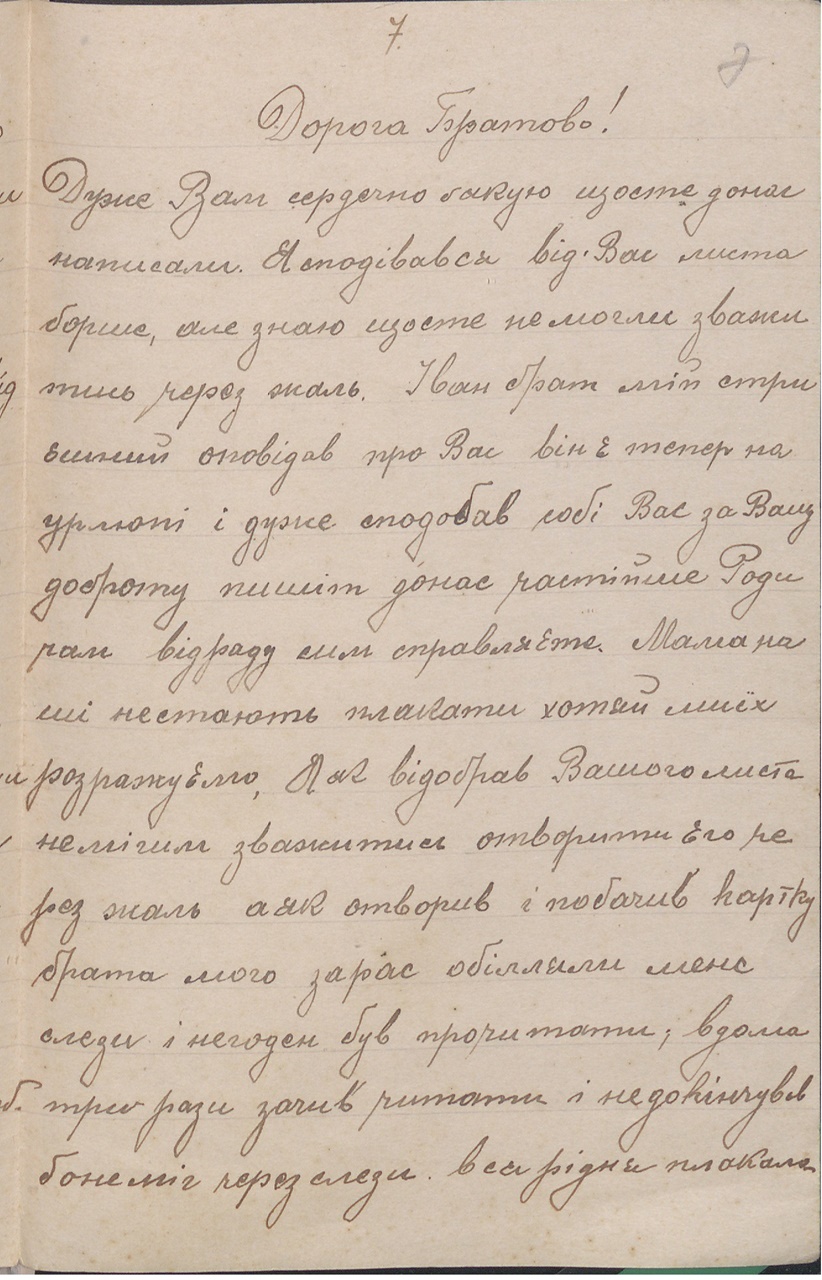 7.
Дорога Братово!
Дуже Вам сердечно дякую щосте донас
написали. Я сподівався від Вас листа
борше, але знаю щосте немогли зважи
тись через жаль. Іван брат мій стри
єшний оповідав про Вас він є тепер на
урлюпі і дуже сподобав собі Вас за Вашу
доброту пишіт донас частійше Роди
чам відраду сим справляєте. Мама на
ші нестають плакати хотяй миїх
розражуємо, Я як відобрав Вашого листа
немігим зважитись отворити єго че
рез жаль а як отворив і побачив картку
брата мого зарас обілляли мене
слези і негоден був прочитати; вдома
три рази зачив читати і недокінчував
бонеміг через слези. вся рідня плакала